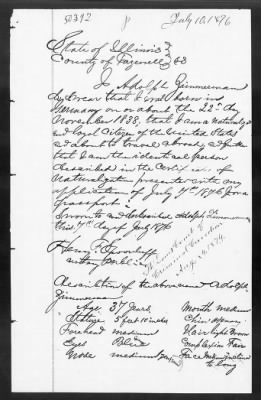 50392 July 10, 1876
State of Illinois }
County of Tazewell } SS
I Adolph Zimmerman
do swear that I was born in
Germany on or about the 22d day
November 1838, that I am a Naturalized
and loyal Citizen of the United States
and about to travel abroad, and further
that I am the identical person
described in the Certificate of
Naturalization presented with my
application of July 7th 1876 for a
passport.
Sworn to and Subscribed Adolph Zimmerman
this 7th day of July 1876
Henry P.
Notary Public
Description of the above named Adolph
Zimmerman
Age 37 Years Mouth medium
Stature 5 feet 10 inches Chin
Forehead medium Hair light Brown
Eyes Complexion Fair
Nose medium Face medium
to long